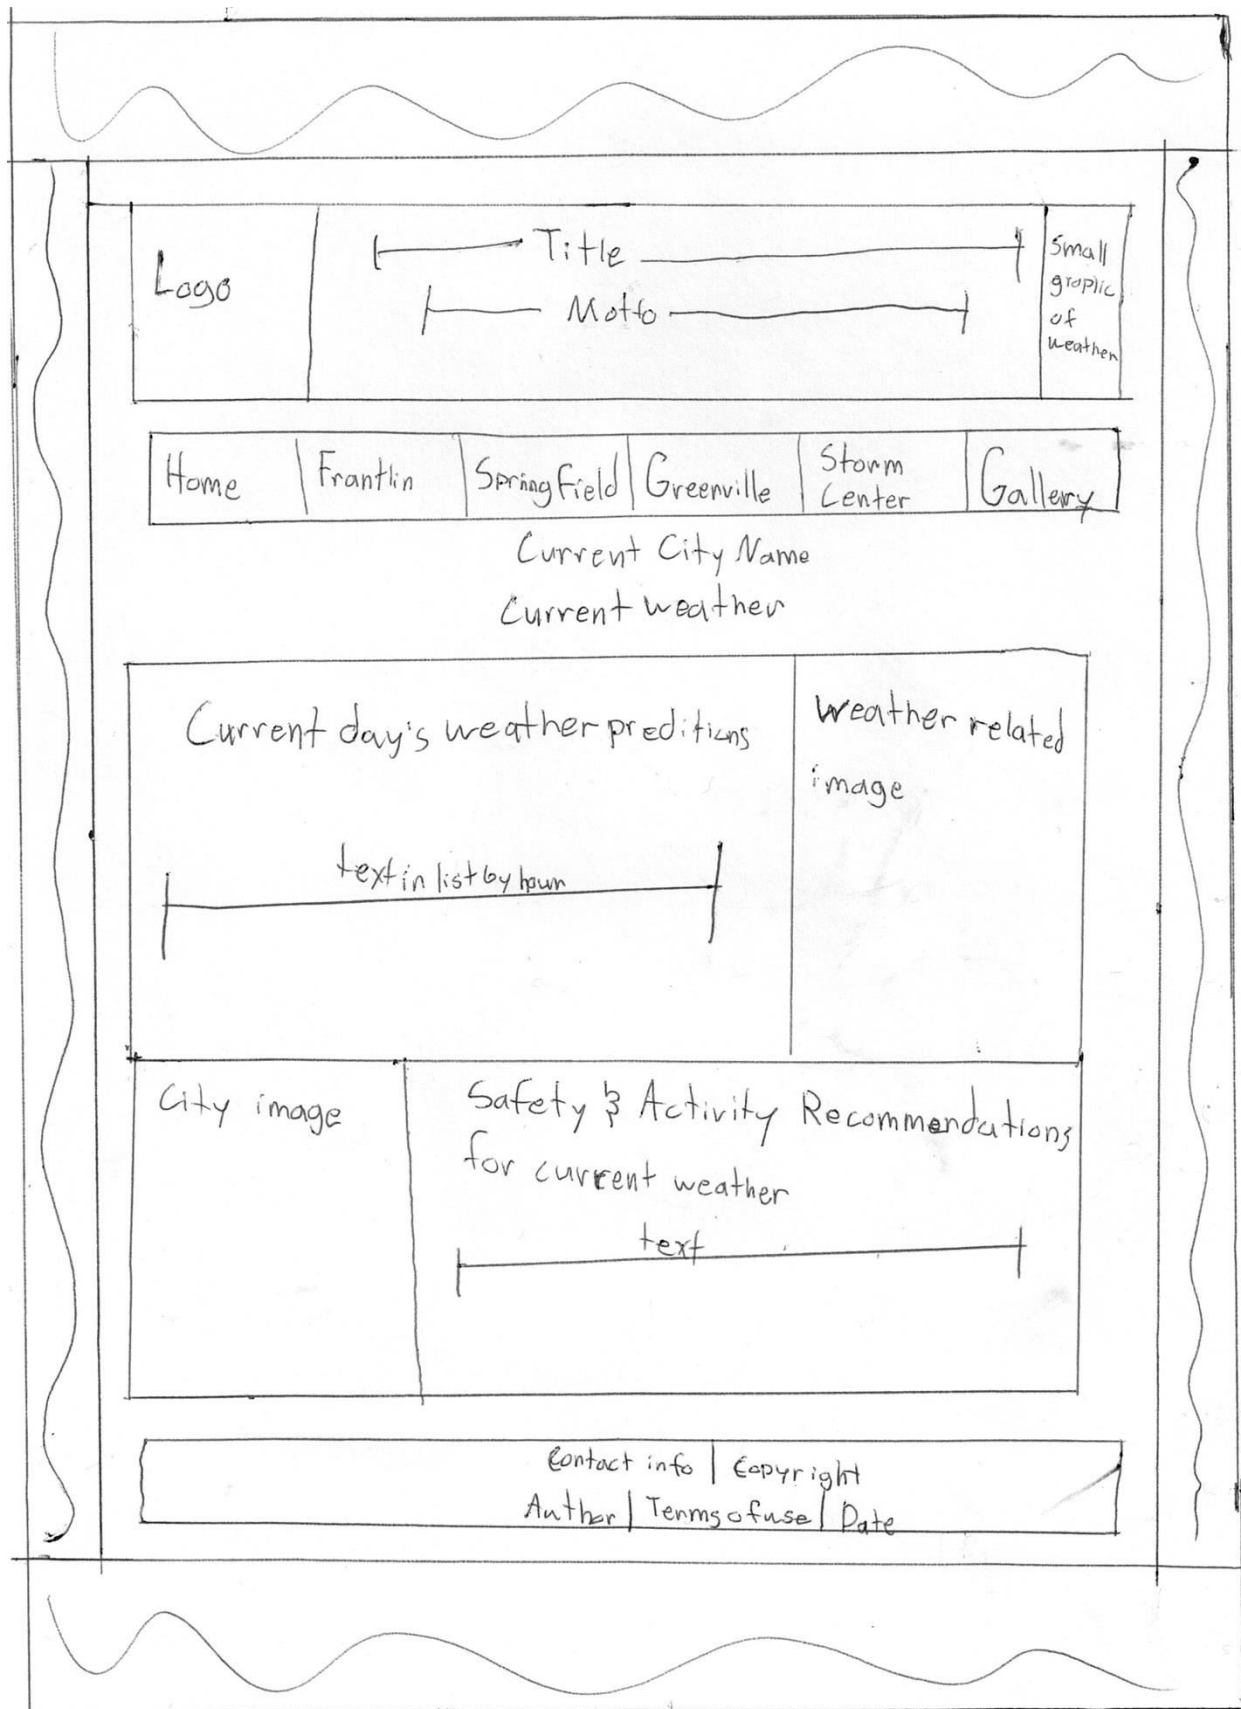 Logo
Title
Motto
Small
graphic
of
weather
Home
Frantlin
Springfield
Greenville
Storm
Center
Gallery
Current City Name
Current weather
Current day's weather preditions
text in list by hour
weather related
image
City image
Safety & Activity Recommendations
for current weather
text
Contact info | Copyright
Author | Terms of use | Date